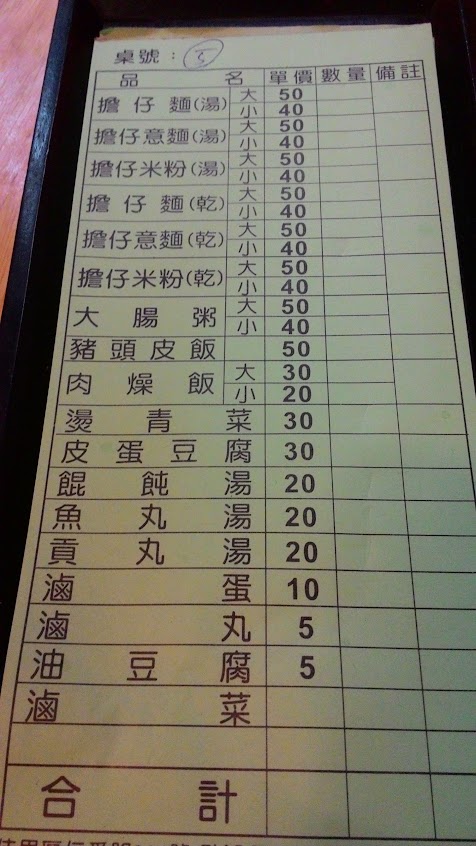 桌號：5
品名 單價 數量 備註
擔仔麵(湯) 大 50
小 40
擔仔意麵(湯) 大 50
小 40
擔仔米粉(湯) 大 50
小 40
擔仔麵(乾) 大 50
小 40
擔仔意麵(乾) 大 50
小 40
擔仔米粉(乾) 大 50
小 40
大腸粥 大 50
小 40
豬頭皮飯 50
肉燥飯 大 30
小 20
燙青菜 30
皮蛋豆腐 30
餛飩湯 20
魚丸湯 20
貢丸湯 20
滷蛋 10
滷丸 5
油豆腐 5
滷菜
合計